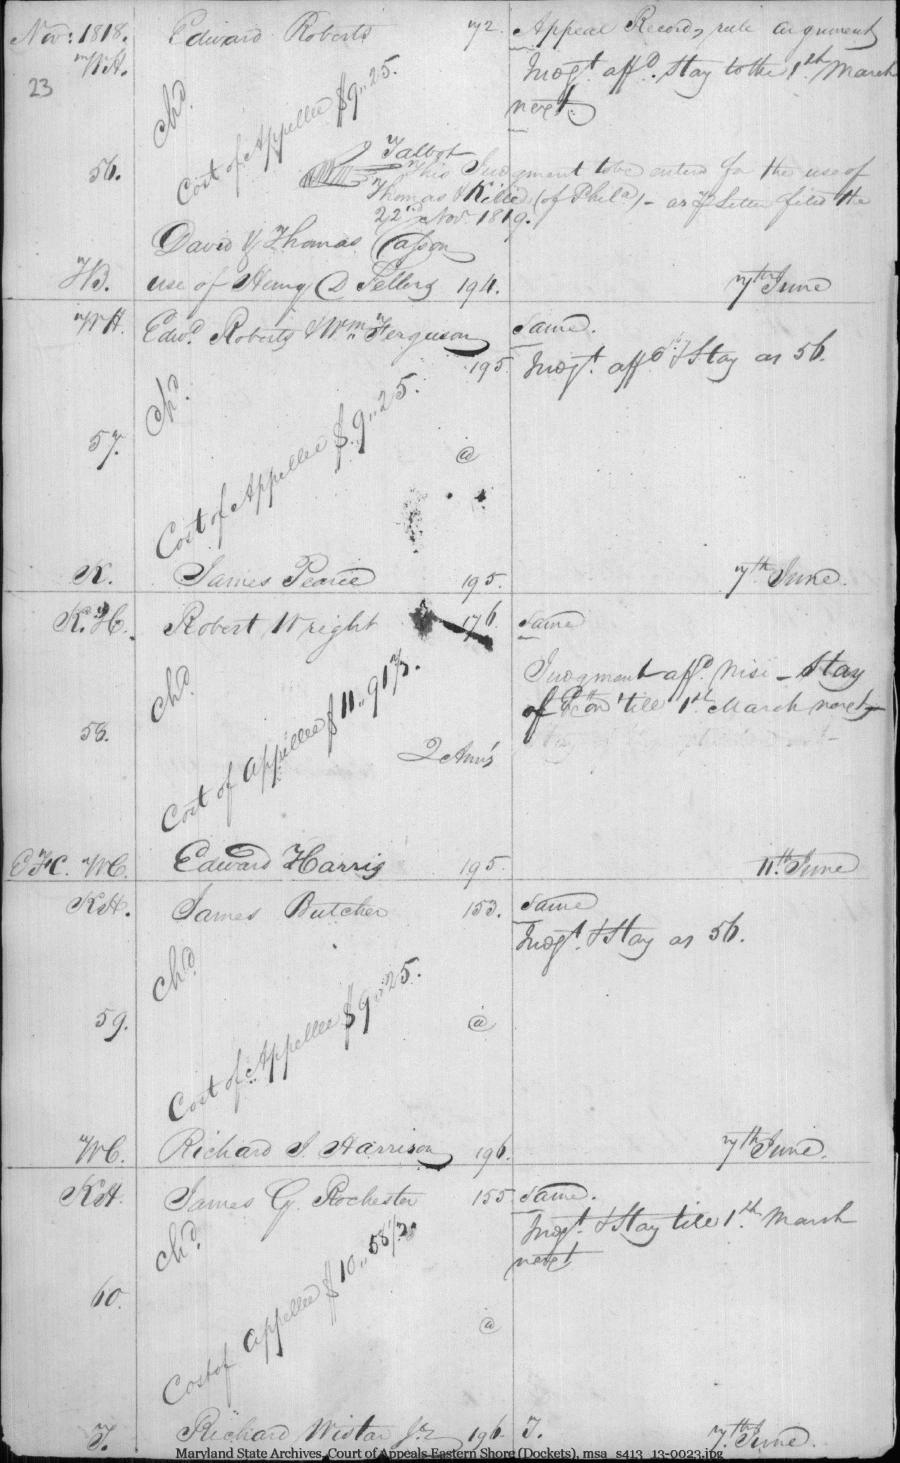 Nov: 1818. Edward Roberts 72. Appeal Record, rule argument
WH. Judgt. affd. Stay to the 1st March
23 next.
Chd.
Cost of Appellee $9..25.
Talbot
56. This Judgment to be entered for the use of
Thomas & Kille (of Phila) - as pr Letter filed the
22nd Nov. 1819.
David & Thomas Casson
HB. use of Henry D Sellers 194. 7th June
WH. Edwd. Roberts & Wm. Ferguson same.
195 Judgt. affd. & Stay as 56.
Chd.
57. Cost of Appellee $9..25. @
K. James Pearce 195. 7th June.
K.H. Robert Wright 176. same
Judgment affd. Nisi - Stay
Chd. of Exon till 1st March next
58. Cost of Appellee $11..91⅔. 2 Am's
EFC. WC. Edward Harris 195. 11th June
KH. James Butcher 153. same
Judgt. & Stay as 56.
Chd.
59. Cost of Appellee $9..25. @
WC. Richard J. Harrison 196. 7th June.
KH. James G. Rochester 155. same.
Judgt. & Stay till 1st March
next
Chd.
60. Cost of Appellee $10..58⅓. @
T. Richard Wistar Jr 196. T. 7th June.
Maryland State Archives, Court of Appeals Eastern Shore (Dockets), msa_s413_13-0023.jpg